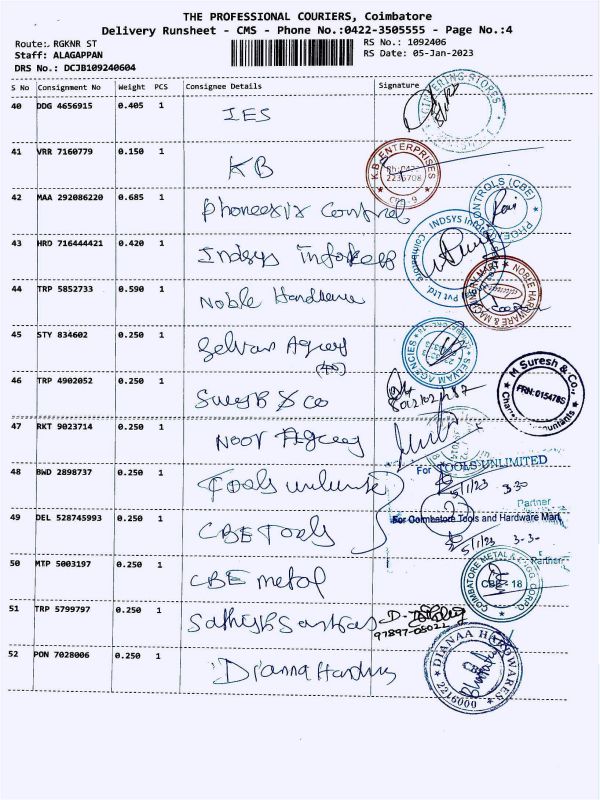 THE PROFESSIONAL COURIERS, Coimbatore
Delivery Runsheet - CMS - Phone No.:0422-3505555 - Page No.:4
Route:. RGKNR ST RS No.: 1092406
Staff: ALAGAPPAN RS Date: 05-Jan-2023
DRS No.: DCJB109240604
S No Consignment No Weight PCS Consignee Details Signature
40 DDG 4656915 0.405 1 IES
41 VRR 7160779 0.150 1 KB
K.B. ENTERPRISES
2236708
CBE-9
42 MAA 292086220 0.685 1 Phoneexix Control
CONTROLS (CBE)
43 HRD 716444421 0.420 1 Indsys
INDSYS
Pvt Ltd.
Coimbatore
44 TRP 5852733 0.590 1 Noble Hardware
NOBLE HARDWARE & MACHINERY MART
45 STY 834602 0.250 1 Selvam Agency
SELVAM AGENCIES
46 TRP 4902052 0.250 1 & co
M Suresh & Co.,
FRN:015478S
47 RKT 9023714 0.250 1 Noor Agency
48 BWD 2898737 0.250 1 Tools
For TOOLS UNLIMITED
5/1/23 3.30
Partner
49 DEL 528745993 0.250 1 CBE Tools
For Coimbatore Tools and Hardware Mart
5/1/23
Partner
50 MTP 5003197 0.250 1 CBE metal
COIMBATORE METAL & ENGG CORPO.
CBE - 18
51 TRP 5799797 0.250 1
97897-05022
52 PON 7028006 0.250 1 Dianna
DIANAA HARDWARES
2216000